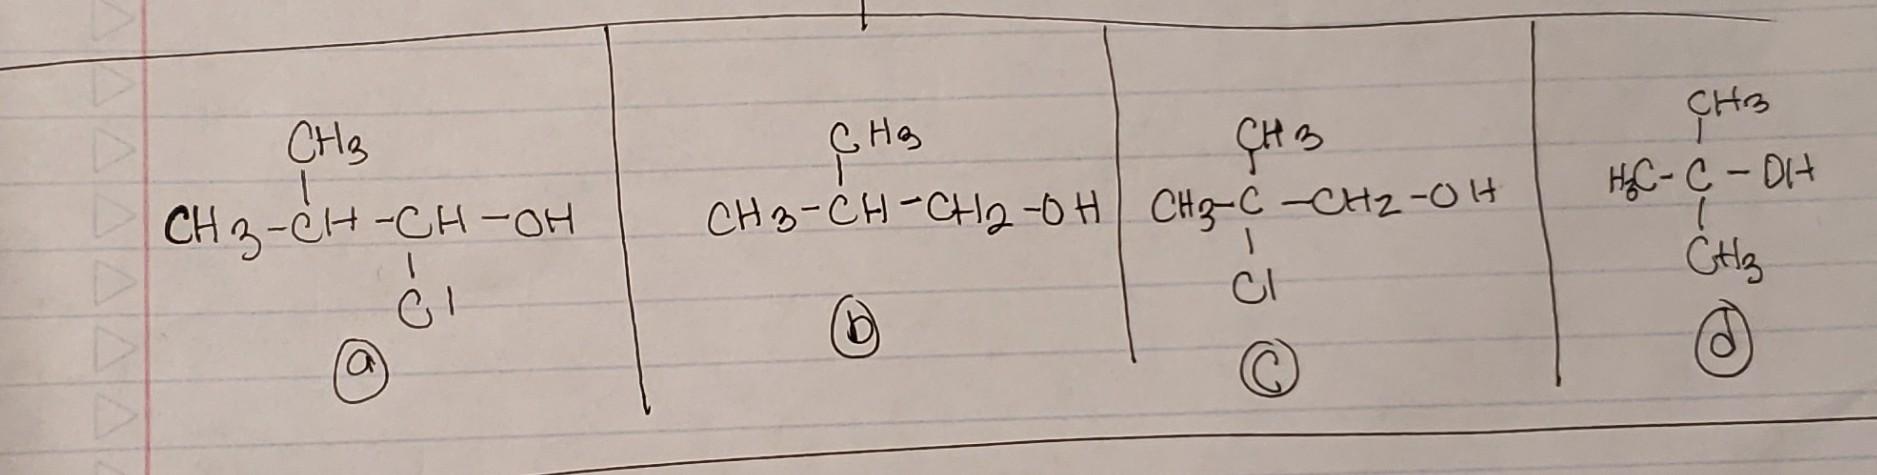 CH3
CH3-CH-CH-OH
Cl
a
CH3
CH3-CH-CH2-OH
b
CH3
CH3-C-CH2-OH
Cl
c
CH3
H3C-C-OH
CH3
d